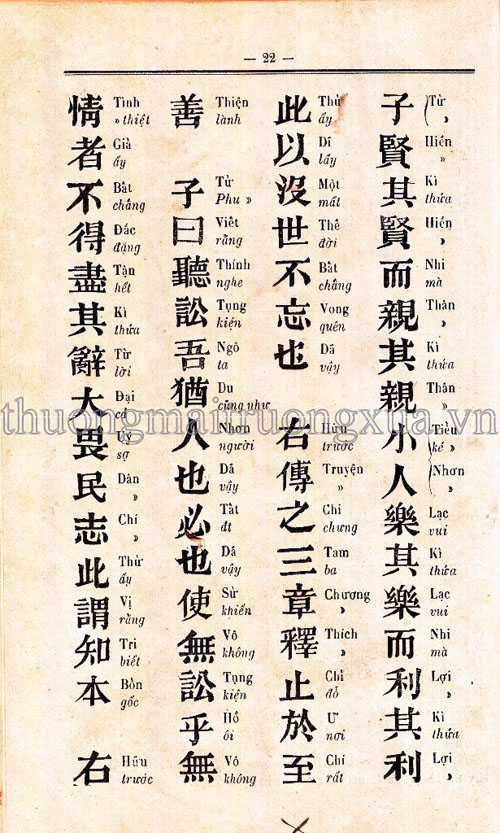 — 22 —
子賢其賢而親其親小人樂其樂而利其利
(Tử ,
Hiền »
Kì thửa
Hiền ,
Nhi mà
Thân ,
Kì thửa
Thân »
(Tiểu kẻ »
(Nhơn ,
Lạc vui
Kì thửa
Lạc vui
Nhi mà
Lợi ,
Kì thửa
Lợi ,
此以沒世不忘也 右傳之三章釋止於至
Thử ấy
Dĩ lấy
Một mất
Thế đời
Bất chẳng
Vong quên
Dã vậy
Hữu trước
Truyện »
Chi chưng
Tam ba
Chương ,
Thích ,
Chỉ đỗ
Ư nơi
Chí rất
善 子曰聽訟吾猶人也必也使無訟乎無
Thiện lành
Tử Phu »
Viết rằng
Thính nghe
Tụng kiện
Ngô ta
Du cũng như
Nhơn người
Dã vậy
Tất ắt
Dã vậy
Sử khiến
Vô không
Tụng kiện
Hồ ôi
Vô không
情者不得盡其辭大畏民志此謂知本 右
Tình » thiệt
Giả ấy
Bất chẳng
Đắc đặng
Tận hết
Kì thửa
Từ lời
Đại cả
Úy sợ
Dân »
Chí »
Thử ấy
Vị rằng
Tri biết
Bổn gốc
Hữu trước
thuongmaitruongxua.vn